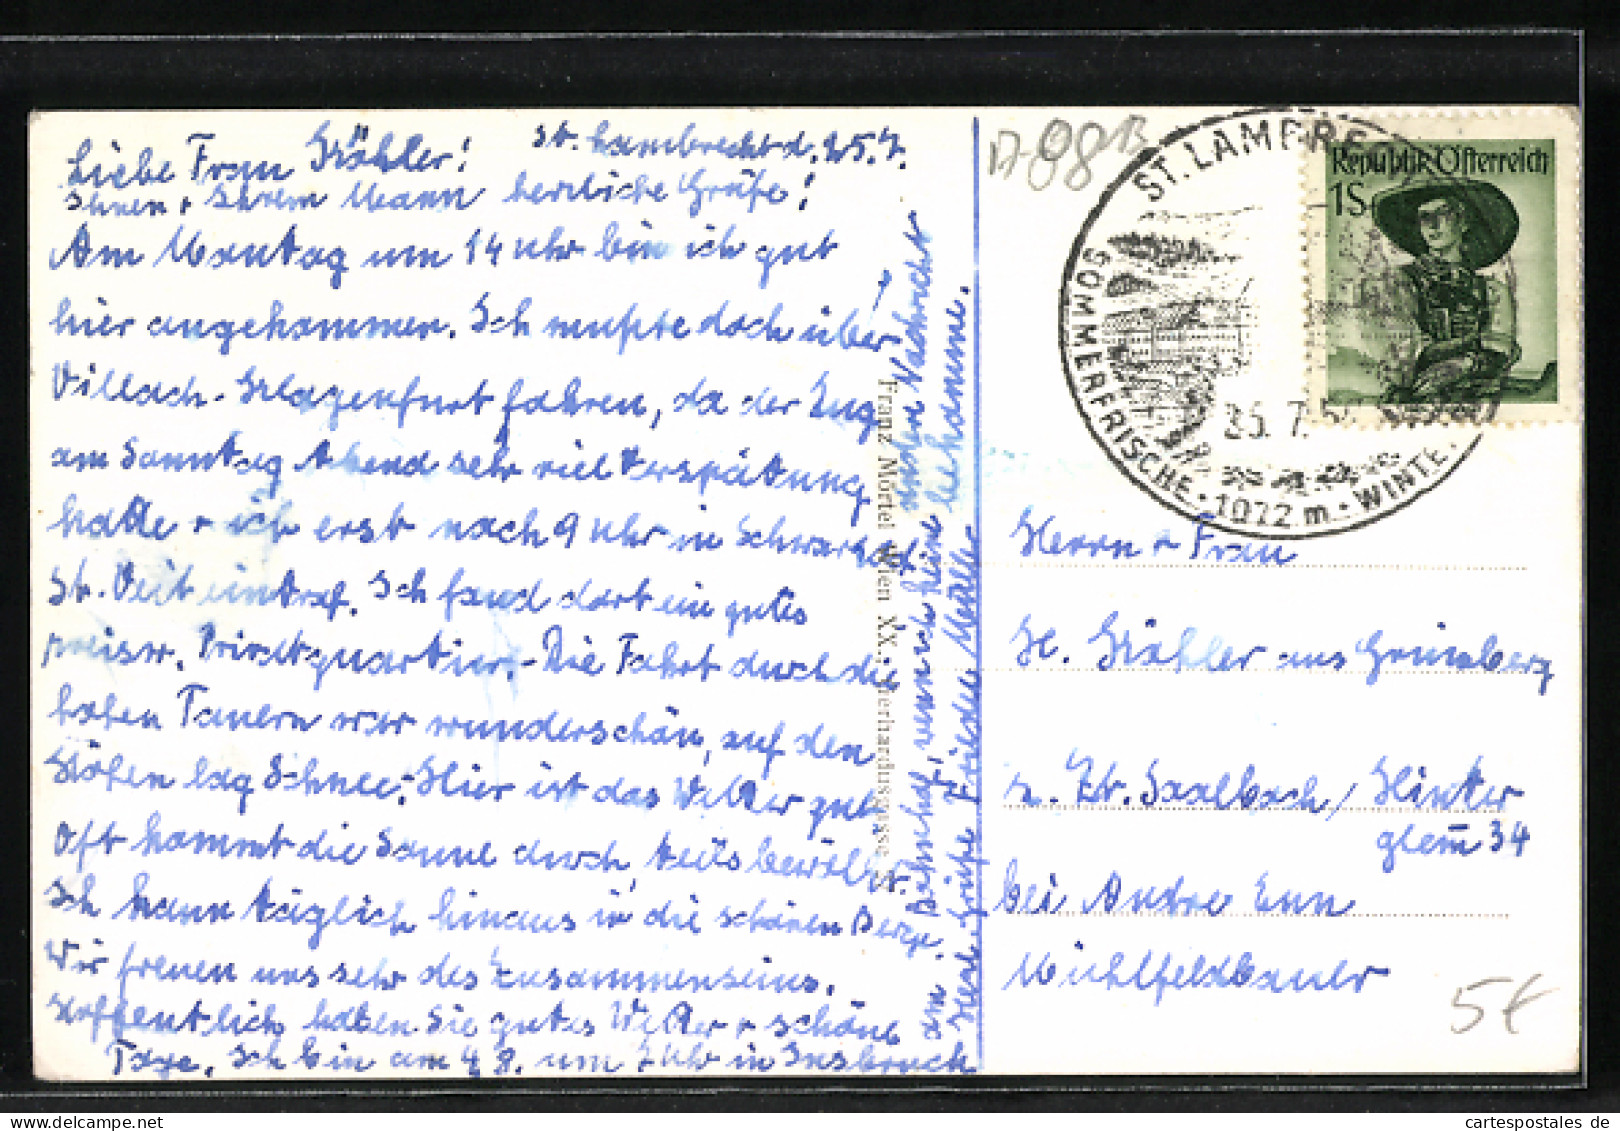 St. Lambrecht d. 25.7.
Liebe Frau Gröhler!
Ihnen + Ihrem Mann herzliche Grüße!
Am Montag um 14 Uhr bin ich gut
hier angekommen. Ich mußte doch über
Villach-Klagenfurt fahren, da der Zug
am Sonntag Abend sehr viel Verspätung
hatte + ich erst nach 9 Uhr in Schwarzach
St. Veit eintraf. Ich fand dort ein gutes
preisw. Privatquartier.- Die Fahrt durch die
hohen Tauern war wunderschön, auf den
Höhen lag Schnee.- Hier ist das Wetter gut
Oft kommt die Sonne durch, teils bewölkt.
Ich kann täglich hinaus in die schönen Berge.
Wir freuen uns sehr des Zusammenseins.
Hoffentlich haben Sie gutes Wetter + schöne
Tage. Ich bin am 8. um Uhr in Innsbruck
am Bahnhof, wenn ich keine andere Nachricht
bekomme.
Herzl. Grüße Frieden
Franz Mörtel Wien XX.,
A-98B
ST. LAMBRE
SOMMERFRISCHE · 1072 m · WINTE
25. 7. 5
Republik Österreich
1S
Herrn + Frau
H. Gröhler aus Grünberg
z. Zt. Saalbach / Hinter
glem̅ 34
bei Andre Enn
Mühlfeldbauer
5€
cartespostales de